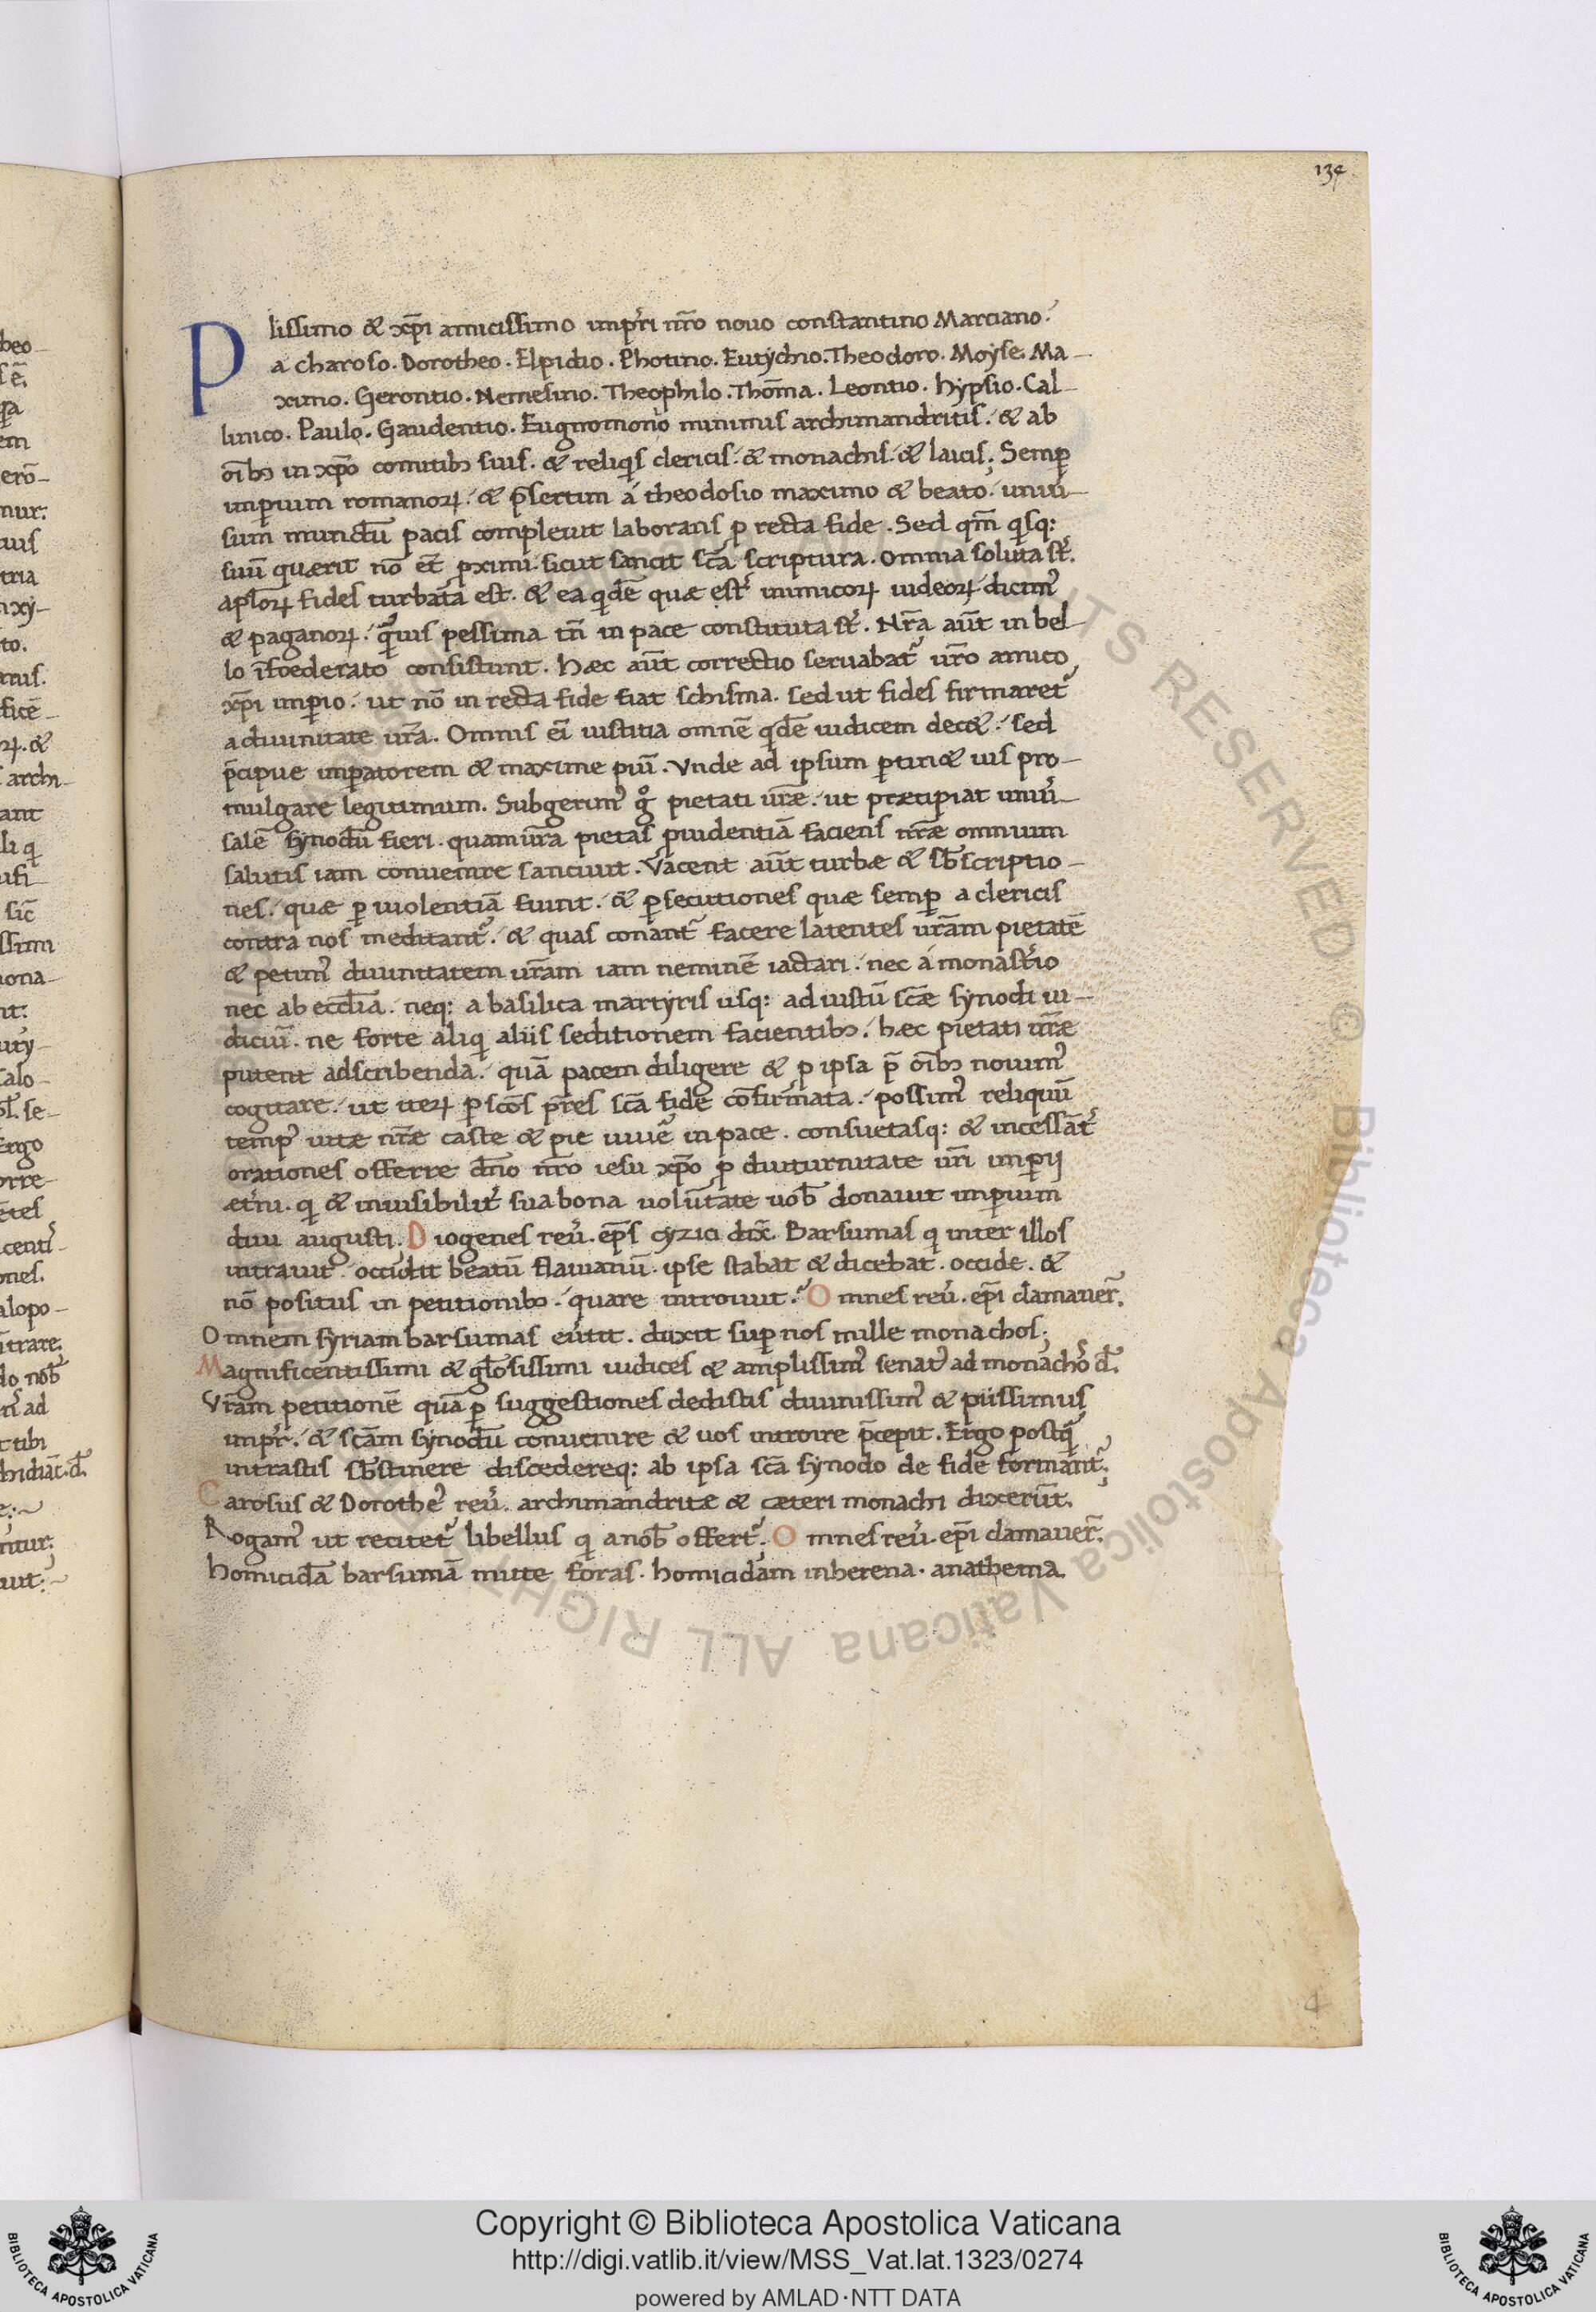 134
PIissimo & xp̄i amicissimo imp̄ri nr̄o nouo constantino Marciano.
a charoso. Dorotheo. Elpidio. Photino. Eutychio. Theodoro. Moyse. Ma-
ximo. Gerontio. Nemesino. Theophilo. Thom̄a. Leontio. hypsio. Cal-
linico. Paulo. Gaudentio. Eugnomonio minimis archimandritis. & ab
oīb; in xp̄o comitib; suis. & reliqis clericis. & monachis. & laicis. Semp̱
imp̱ium romanoꝝ. & p̄sertim a theodosio maximo & beato. uniu̾-
sum mundū pacis compleuit laborans ꝓ recta fide. Sed qm̄ qisq:
suū quærit nō et̄ ꝓximi. sicut sancit sc̄a scriptura. omnia soluta st̾.
apl̄oꝝ fides turbata est. & ea qidē quæ est̾ inimicoꝝ iudeoꝝ dicim̾
& paganoꝝ. qͣuis pessima tn̄ in pace constituta st̾. Nr̄a aūt in bel-
lo īfoederato consistunt. hæc aūt correctio seruabat̾ ur̄o amico
xp̄i imp̱io. ut nō in recta fide fiat schisma. sed ut fides firmaret̾
a diuinitate ur̄a. Omnis eī iustitia omnē qidē iudicem dec&. sed
p̄cipue imp̱atorem & maxime piū. Vnde ad ipsum p̱tin& ius pro-
mulgare legitimum. Subgerim̾ gͦ pietati ur̄æ. ut præcipiat uniu̾-
salē synodū fieri. quam ur̄a pietas puidentiā faciens nr̄æ omnium
salutis iam conuenire sanciuit. Vacent aūt turbæ & sb̄scriptio-
nes. quæ p̱ uiolentiā fiunt. & p̱secutiones quæ semp̱ a clericis
contra nos meditant̾. & quas conant̾ facere latentes ur̄am pietatē
& petim̾ diuinitatem ur̄am iam neminē iactari. nec a monast̾io
nec ab eccl̄ia. neq: a basilica martyris usq: ad iustū sc̄æ synodi iu-
diciū. ne forte aliqi aliis seditionem facientib;. hæc pietati ur̄æ
putent adscribenda. quā pacem diligere & ꝓ ipsa p̄ oīb; nouim̾
cogitare. ut iteꝝ p̱ sc̄os p̄res sc̄a fide cōfirmata. possim̾ reliquū
temp̾ uitæ nr̄æ caste & pie uiue̾ in pace. consuetasq: & incessāt̾
orationes offerre dn̄o nr̄o iesu xp̄o ꝓ diuturnitate ur̄i imp̱ij
æt̾ni. qi & inuisibilit̾ sua bona uolūtate uob̄ donauit imp̱ium
diui augusti. Diogenes reu̾. ep̄s cyzici dix̄. Barsumas qi inter illos
intrauit. occidit beatū flauianū. ipse stabat & dicebat. occide. &
nō positus in petitionib;. quare introiuit. Omnes reu̾. ep̄i clamauer̄.
Omnem syriam barsumas eu̾tit. duxit sup̱ nos mille monachos.
Magnificentissimi & gl̄osissimi iudices & amplissim̾ senat̾ ad monacho̾ d̄.
Vr̄am petitionē quā p̱ suggestiones dedistis diuinissim̾ & piissimus
imp̄r. & sc̄am synodū conuenire & uos introire p̄cepit. Ergo postqͣ
intrastis sb̄stinere discedereq: ab ipsa sc̄a synodo de fide formant̾.
Carosus & Dorothe̾ reu̾. archimandritæ & cæteri monachi dixerūt.
Rogam̾ ut recitet̾ libellus qi a nob̄ offert̾. Omnes reu̾. ep̄i clamauer̄.
homicidā barsumā mitte foras. homicidam in herena. anathema.
Copyright © Biblioteca Apostolica Vaticana
http://digi.vatlib.it/view/MSS_Vat.lat.1323/0274
powered by AMLAD·NTT DATA